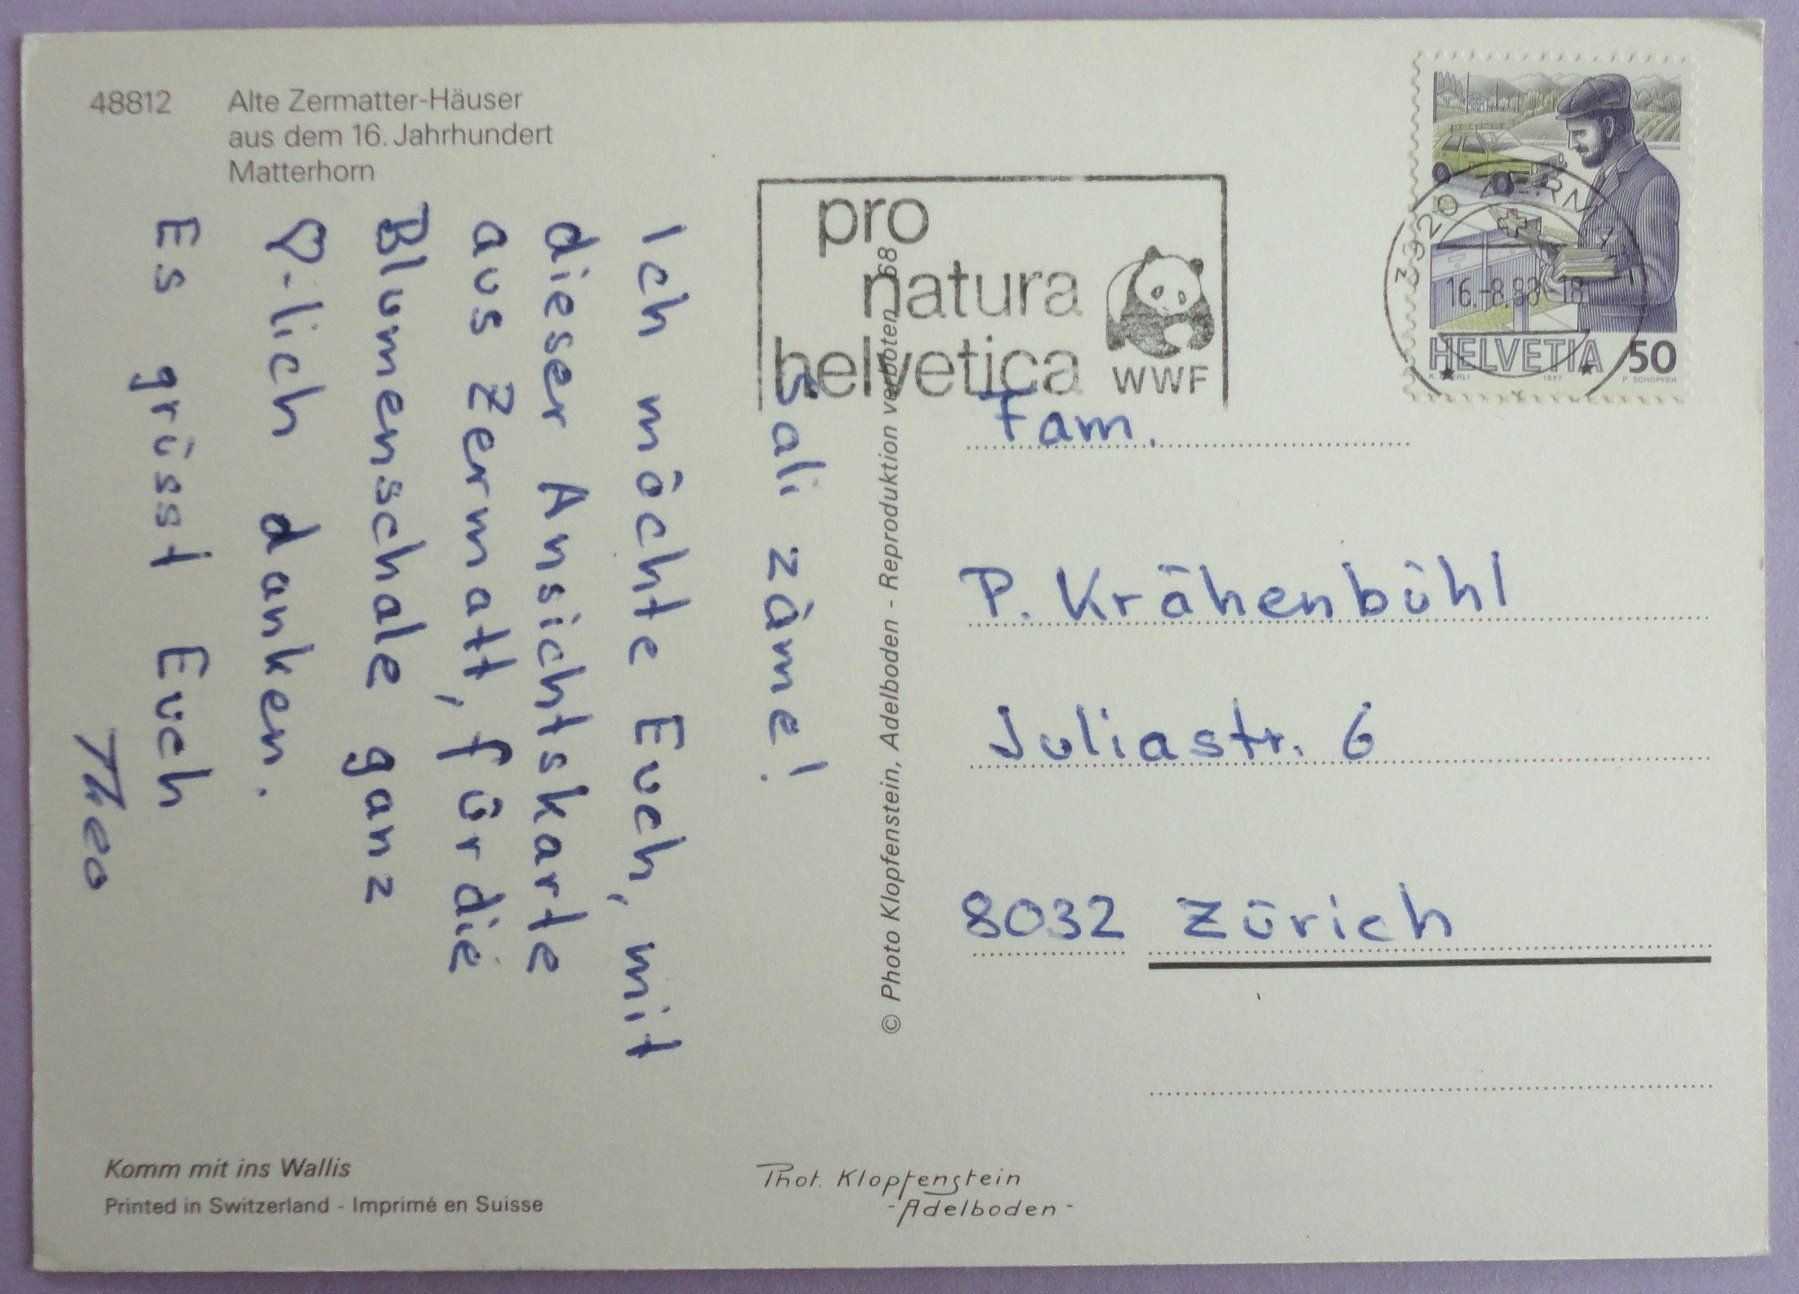 48812
Alte Zermatter-Häuser
aus dem 16. Jahrhundert
Matterhorn
Sali zäme!
Ich möchte Euch, mit
dieser Ansichtskarte
aus Zermatt, für die
Blumenschale ganz
♡-lich danken.
Es grüsst Euch
Theo
Komm mit ins Wallis
Printed in Switzerland - Imprimé en Suisse
© Photo Klopfenstein, Adelboden - Reproduktion verboten 68
Phot. Klopfenstein
- Adelboden -
pro
natura
helvetica
WWF
16.-8.88-18
HELVETIA 50
1987 P. SCHOPFER
Fam.
P. Krähenbühl
Juliastr. 6
8032 Zürich